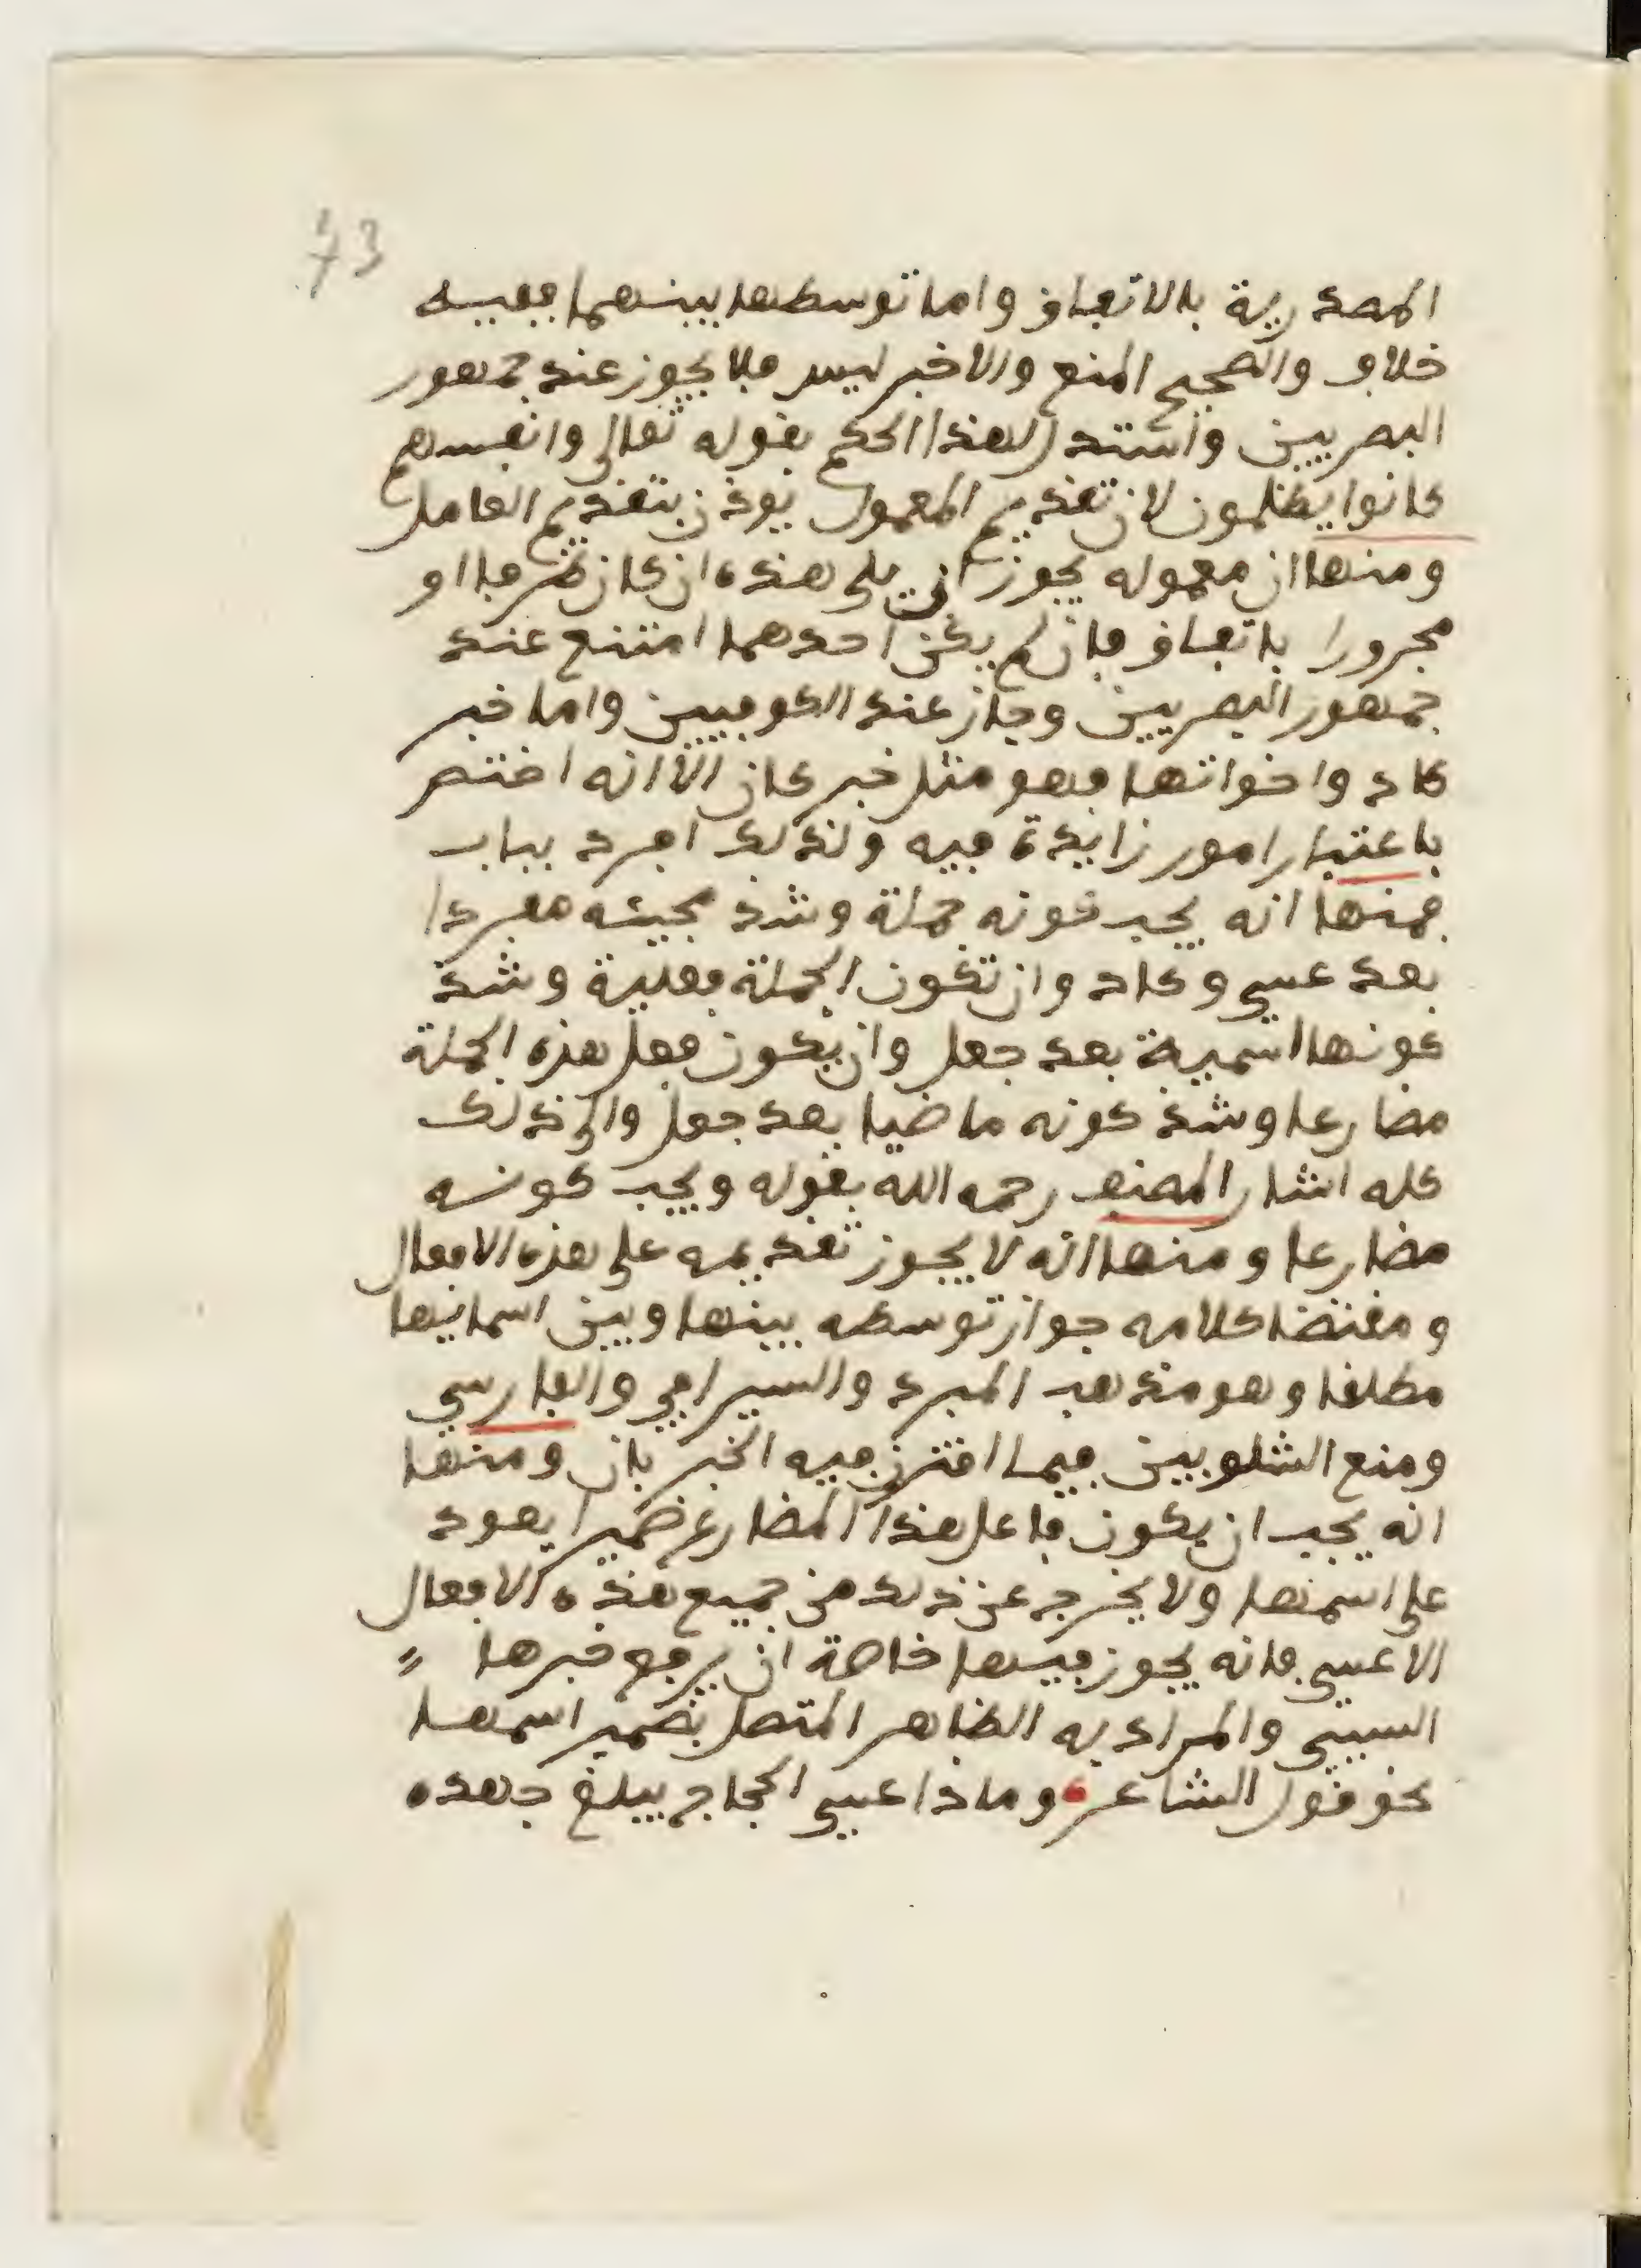 73
المصدرية بالاتفاق واما توسطها بينهما ففيه
خلاف والصحيح المنع والاخبر ليس فلا يجوز عند جمهور
البصريين واستدل لهذا الحكم بقوله تعالى وانفسهم
كانوا يظلمون لان تقديم المعمول يوذن بتقديم العامل
ومنها ان معموله يجوز ان يلي هذه ان كان ظرفا او
مجرورا باتفاق فان لم يكن احدهما امتنع عند
جمهور البصريين وجاز عند الكوفيين واما خبر
كاد واخواتها فهو مثل خبر كان الا انه اختص
باعتبار امور زايدة فيه ولذلك افرد بباب
فمنها انه يجب كونه جملة وشذ مجيئه مفردا
بعد عسى وكاد وان تكون الجملة فعلية وشذ
كونها اسمية بعد جعل وان يكون فعل هذه الجملة
مضارعا وشذ كونه ماضيا بعد جعل والى ذلك
كله اشار المصنف رحمه الله بقوله ويجب كونه
مضارعا ومنها انه لا يجوز تقديمه على هذه الافعال
ومقتضا كلامه جواز توسطه بينها وبين اسمائها
مطلقا وهو مذهب المبرد والسيرافي والفارسي
ومنع الشلوبين فيما اقترن فيه الخبر بان ومنها
انه يجب ان يكون فاعل هذا المضارع ضميرا يعود
على اسمها ولا يخرج عن ذلك من جميع هذه الافعال
الا عسى فانه يجوز فيها خاصة ان يرفع خبرها
السببي والمراد به الظاهر المتصل بضمير اسمها
نحو قول الشاعر وماذا عسى الحجاج يبلغ جهده